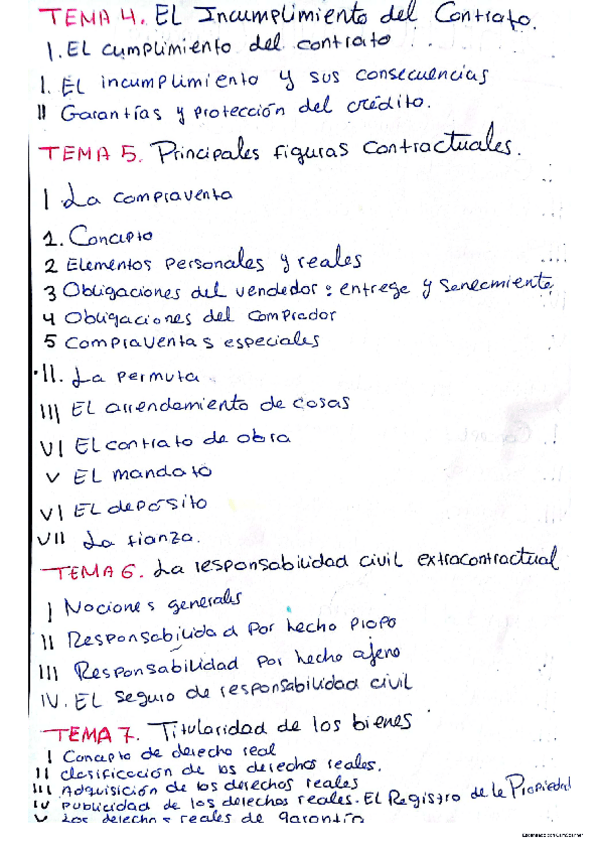 TEMA 4. El Incumplimiento del Contrato.
I. El cumplimiento del contrato
I. El incumplimiento y sus consecuencias
II Garantías y protección del crédito.
TEMA 5. Principales figuras contractuales.
I La compraventa
1. Concepto
2 Elementos personales y reales
3 Obligaciones del vendedor: entrega y saneamiento
4 Obligaciones del comprador
5 Compraventas especiales
II. La permuta
III El arrendamiento de cosas
VI El contrato de obra
V El mandato
VI El depósito
VII La fianza.
TEMA 6. La responsabilidad civil extracontractual
I Nociones generales
II Responsabilidad por hecho propo
III Responsabilidad por hecho ajeno
IV. El seguro de responsabilidad civil
TEMA 7. Titularidad de los bienes
I Concepto de derecho real
II clasificación de los derechos reales.
III Adquisición de los derechos reales
IV publicidad de los derechos reales. El Registro de la Propiedad
V Los derechos reales de garantía